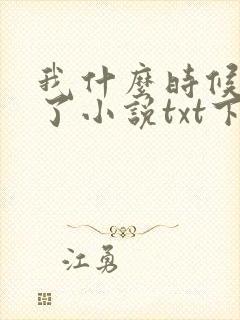 我什麼時候
了小說txt下
江勇